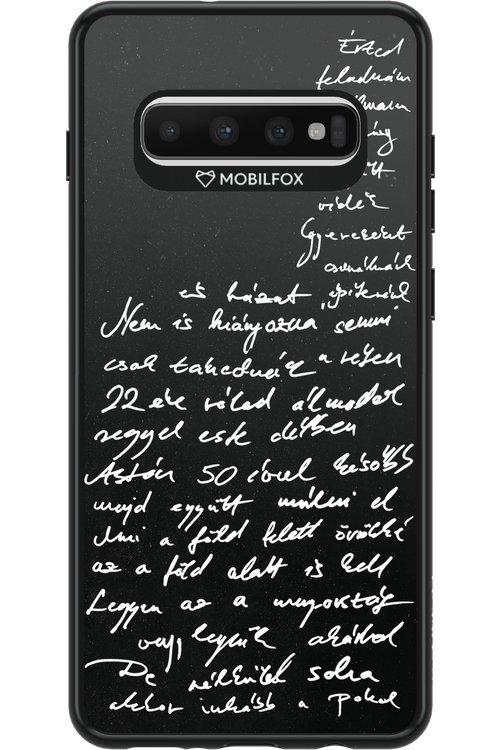 Érted
feladnám
álmaim
vidék
MOBILFOX
Gyerekeket
csinálnánk
és házat építenénk
Nem is hiányozna semmi
csak takednák a részen
22 éve rólad álmodok
reggel este délben
Aztán 50 évvel később
majd együtt múlni el
Ami a föld felett örökké
az a föld alatt is kell
Legyen az a mennyország
vagy legyünk akárhol
De nélküled soha
akkor inkább a pokol